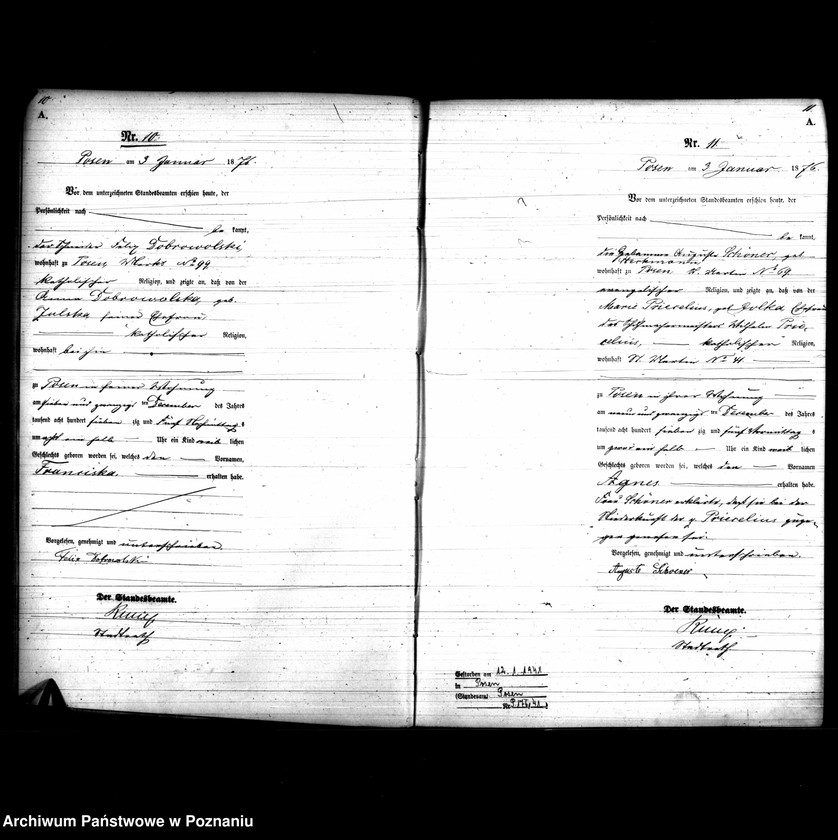 10
A.
Nr. 10.
Posen am 3 Januar 1876.
Vor dem unterzeichneten Standesbeamten erschien heute, der
Persönlichkeit nach
be kannt,
der Schneider Felix Dobrowolski
wohnhaft zu Posen Markt No 99
katholischer Religion, und zeigte an, daß von der
Anna Dobrowolska, geb.
Zulska seiner Ehefrau
katholischer Religion,
wohnhaft bei ihm
zu Posen in seiner Wohnung
am sieben und zwanzigsten December des Jahres
tausend acht hundert sieben zig und fünf Nachmittags
um acht ein halb Uhr ein Kind weib lichen
Geschlechts geboren worden sei, welches den Vornamen,
Franciska erhalten habe.
Vorgelesen, genehmigt und unterschrieben.
Felix Dobrowolski
Der Standesbeamte.
Stadtrath
11
A.
Nr. 11
Posen am 3 Januar 1876.
Vor dem unterzeichneten Standesbeamten erschien heute, der
Persönlichkeit nach
be kannt,
die Hebamme Auguste Schöner, geb
wohnhaft zu Posen St. Martin No 69
evangelischer Religion, und zeigte an, daß von der
Marie Priecelius, geb Polka Ehefrau
des Schuhmachermeisters Wilhelm Prie-
celius, katholischer Religion,
wohnhaft St. Martin No 41
zu Posen in ihrer Wohnung
am neun und zwanzigsten December des Jahres
tausend acht hundert sieben zig und fünf Vormittag s
um zwei ein halb Uhr ein Kind weib lichen
Geschlechts geboren worden sei, welches den Vornamen
Agnes erhalten habe.
Frau Schöner erklärte, daß sie bei der
Niederkunft der p. Priecelius zuge-
gen gewesen sei.
Vorgelesen, genehmigt und unterschrieben.
Auguste Schoener
Der Standesbeamte.
Stadtrath
Gestorben am 12.1.1941
in Posen
(Standesamt Posen
Nr.
Archiwum Państwowe w Poznaniu